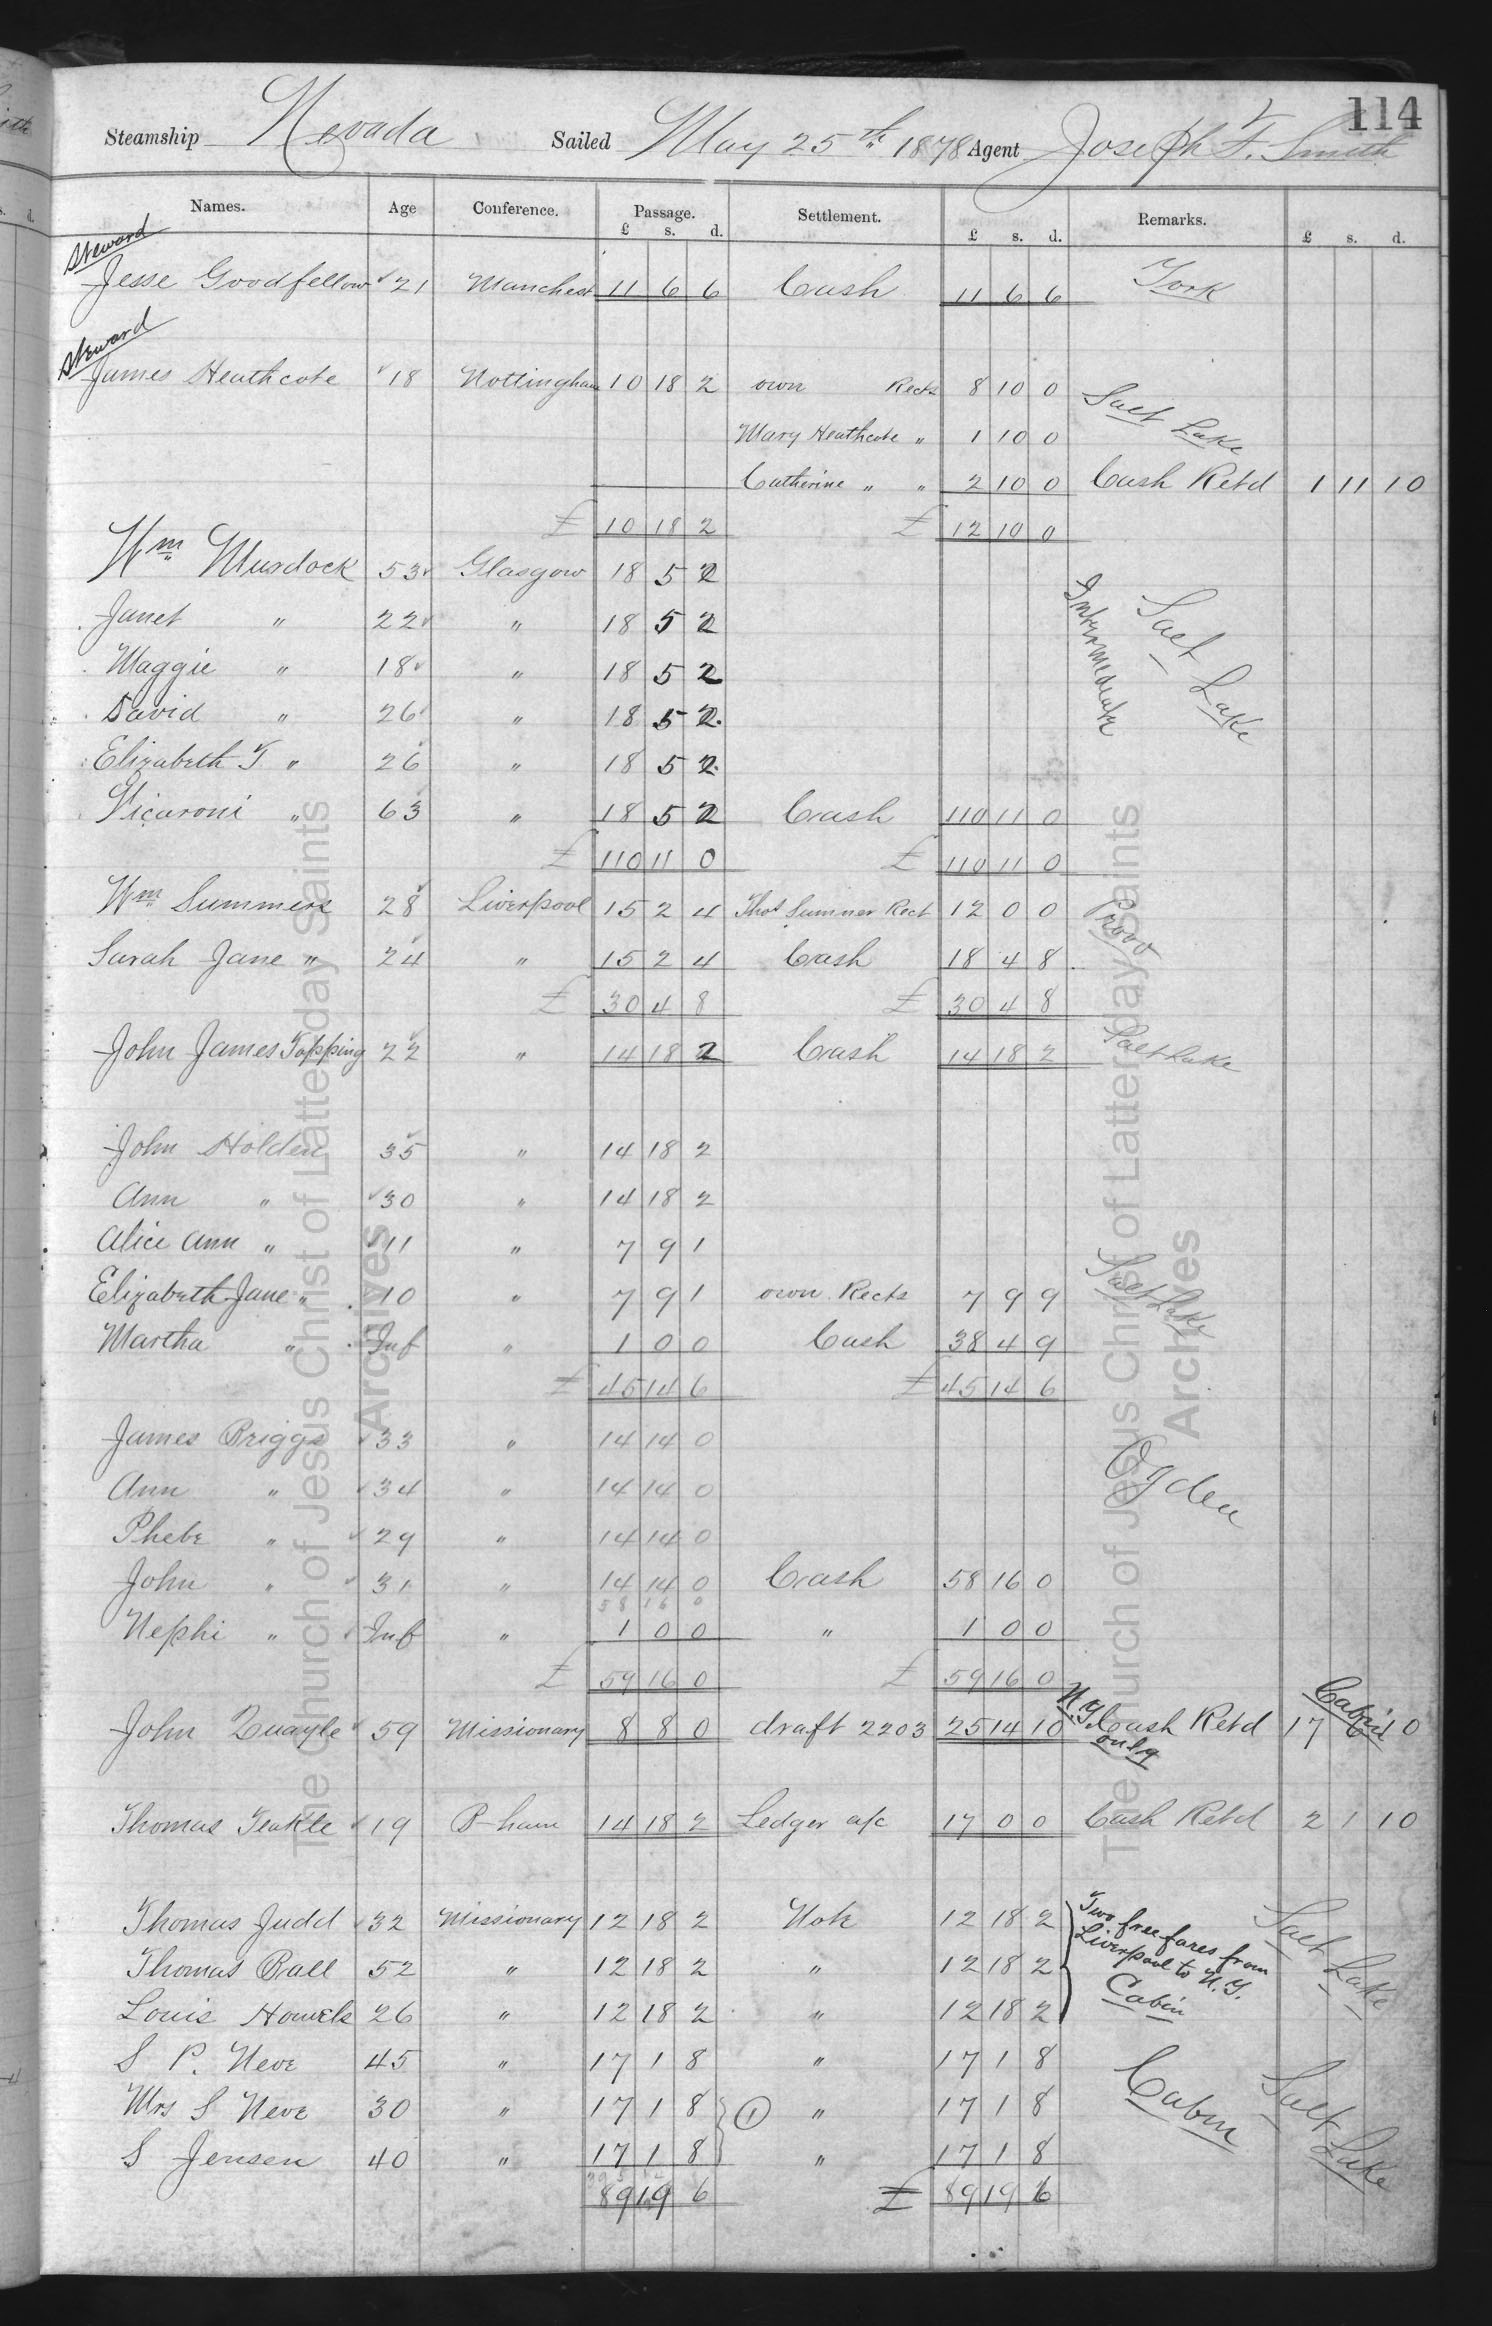 114
Steamship Nevada Sailed May 25th 1878 Agent Joseph F. Smith
Names. Age Conference. Passage. Settlement. Remarks.
£ s. d. £ s. d. £ s. d.
Steward
Jesse Goodfellow 21 Manchest 11 6 6 Cash 11 6 6 York
Steward
James Heathcote 18 Nottingham 10 18 2 own Rects 8 10 0 Salt Lake
Mary Heathcote " 1 10 0
Catherine " " 2 10 0 Cash Retd 1 11 10
£ 10 18 2 £ 12 10 0
Wm Murdock 53 Glasgow 18 5 2 Intermediate Salt Lake
Janet " 22 " 18 5 2
Maggie " 18 " 18 5 2
David " 26 " 18 5 2
Elizabeth T " 26 " 18 5 2
" 63 " 18 5 2 Cash 110 11 0
£ 110 11 0 £ 110 11 0
Wm Summers 28 Liverpool 15 2 4 Thos Sumner Rect 12 0 0 Provo
Sarah Jane " 24 " 15 2 4 Cash 18 4 8
£ 30 4 8 £ 30 4 8
John James Topping 22 " 14 18 2 Cash 14 18 2 Salt Lake
John Holden 35 " 14 18 2
Ann " 30 " 14 18 2
Alice Ann " 11 " 7 9 1
Elizabeth Jane " 10 " 7 9 1 own Rects 7 9 9 Salt Lake
Martha " Inf " 1 0 0 Cash 38 4 9
£ 45 14 6 £ 45 14 6
James Briggs 33 " 14 14 0 Ogden
Ann " 34 " 14 14 0
Phebe " 29 " 14 14 0
John " 31 " 14 14 0 Cash 58 16 0
58 16 0
Nephi " Inf " 1 0 0 " 1 0 0
£ 59 16 0 £ 59 16 0
John Quayle 59 Missionary 8 8 0 draft 2203 25 14 10 N.Y. only Cash Retd 17 6 10 Cabin
Thomas Teakle 19 B-ham 14 18 2 Ledger a/c 17 0 0 Cash Retd 2 1 10
Thomas Judd 32 Missionary 12 18 2 Note 12 18 2 Two free fares from Liverpool to N.Y. Cabin Salt Lake
Thomas Ball 52 " 12 18 2 " 12 18 2
Louis Howels 26 " 12 18 2 " 12 18 2
S P. Neve 45 " 17 1 8 " 17 1 8 Cabin Salt Lake
Mrs S Neve 30 " 17 1 8 1 " 17 1 8
S Jensen 40 " 17 1 8 " 17 1 8
89 19 6 £ 89 19 6
The Church of Jesus Christ of Latter-day Saints
Archives
The Church of Jesus Christ of Latter-day Saints
Archives